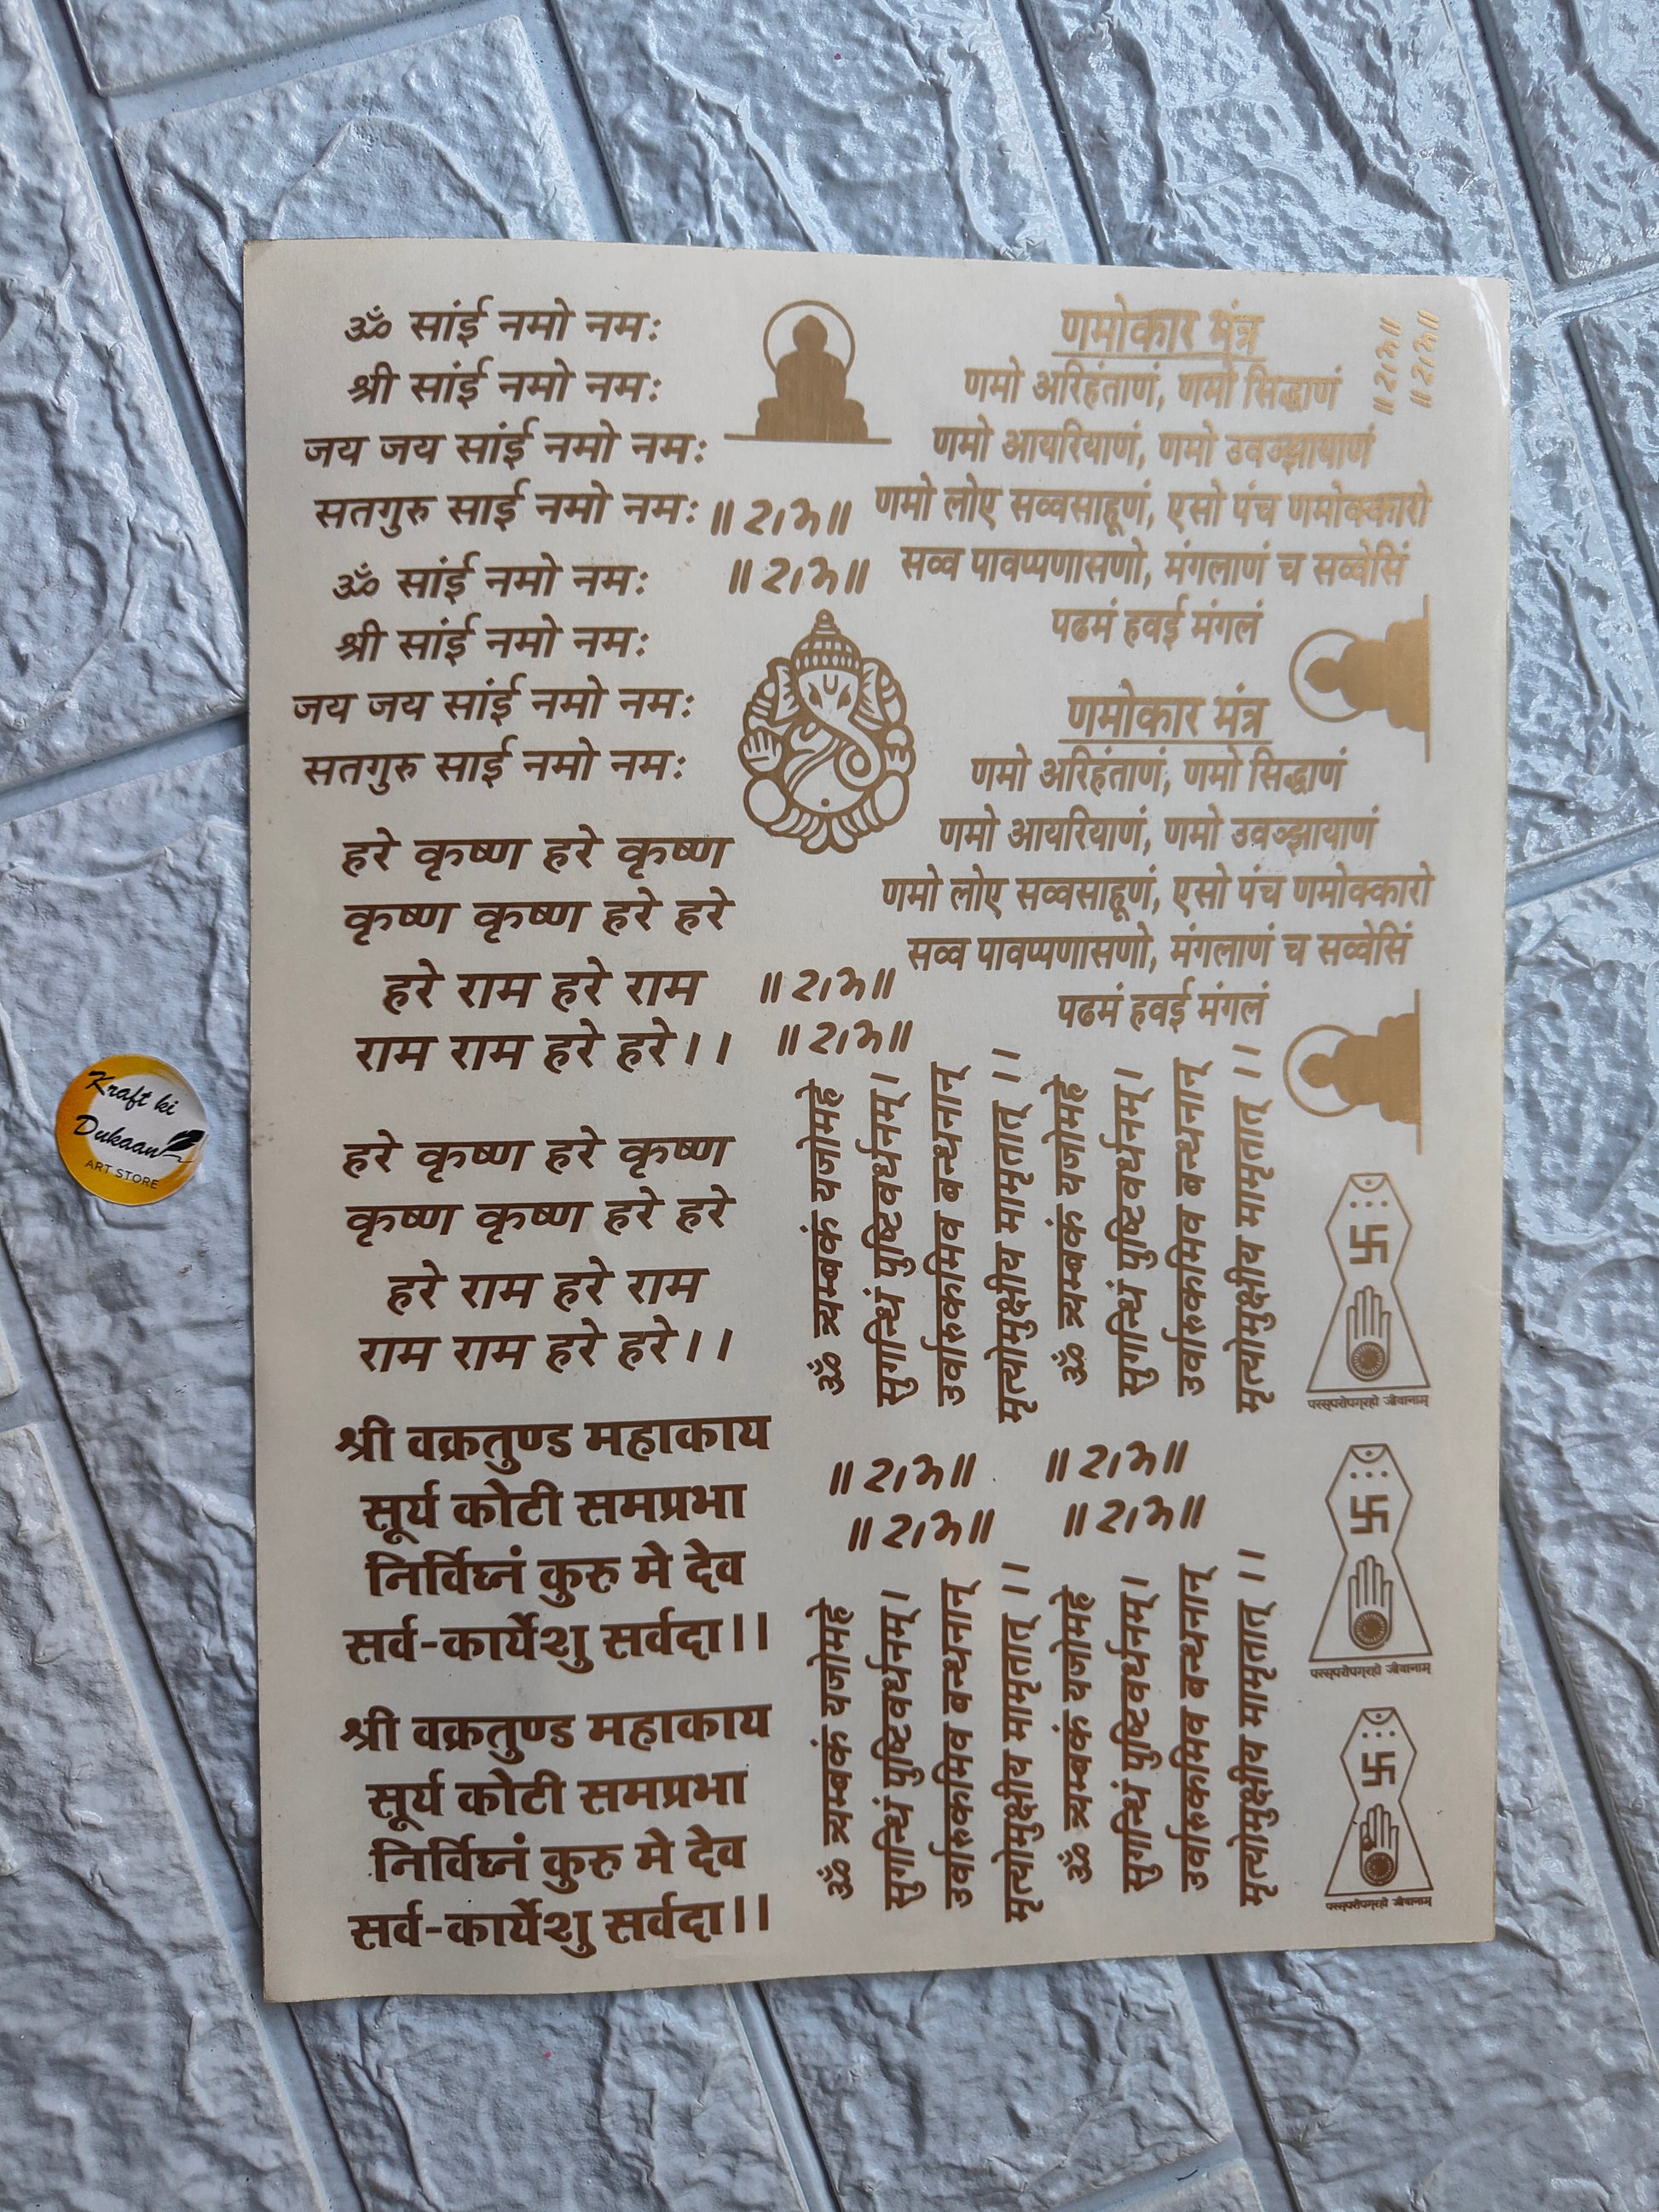 ॐ सांई नमो नमः
श्री सांई नमो नमः
जय जय सांई नमो नमः
सतगुरु साई नमो नमः
ॐ सांई नमो नमः
श्री सांई नमो नमः
जय जय सांई नमो नमः
सतगुरु साई नमो नमः
हरे कृष्ण हरे कृष्ण
कृष्ण कृष्ण हरे हरे
हरे राम हरे राम
राम राम हरे हरे।।
हरे कृष्ण हरे कृष्ण
कृष्ण कृष्ण हरे हरे
हरे राम हरे राम
राम राम हरे हरे।।
श्री वक्रतुण्ड महाकाय
सूर्य कोटी समप्रभा
निर्विघ्नं कुरु मे देव
सर्व-कार्येशु सर्वदा।।
श्री वक्रतुण्ड महाकाय
सूर्य कोटी समप्रभा
निर्विघ्नं कुरु मे देव
सर्व-कार्येशु सर्वदा।।
॥ राम ॥
॥ राम ॥
॥ राम ॥
॥ राम ॥
णमोकार मंत्र
णमो अरिहंताणं, णमो सिद्धाणं
णमो आयरियाणं, णमो उवज्झायाणं
णमो लोए सव्वसाहूणं, एसो पंच णमोक्कारो
सव्व पावप्पणासणो, मंगलाणं च सव्वेसिं
पढमं हवई मंगलं
॥ राम ॥
॥ राम ॥
णमोकार मंत्र
णमो अरिहंताणं, णमो सिद्धाणं
णमो आयरियाणं, णमो उवज्झायाणं
णमो लोए सव्वसाहूणं, एसो पंच णमोक्कारो
सव्व पावप्पणासणो, मंगलाणं च सव्वेसिं
पढमं हवई मंगलं
ॐ त्र्यम्बकं यजामहे
सुगन्धिं पुष्टिवर्धनम्।
उर्वारुकमिव बन्धनान्
मृत्योर्मुक्षीय मामृतात् ।।
ॐ त्र्यम्बकं यजामहे
सुगन्धिं पुष्टिवर्धनम्।
उर्वारुकमिव बन्धनान्
मृत्योर्मुक्षीय मामृतात् ।।
॥ राम ॥
॥ राम ॥
॥ राम ॥
॥ राम ॥
ॐ त्र्यम्बकं यजामहे
सुगन्धिं पुष्टिवर्धनम्।
उर्वारुकमिव बन्धनान्
मृत्योर्मुक्षीय मामृतात् ।।
ॐ त्र्यम्बकं यजामहे
सुगन्धिं पुष्टिवर्धनम्।
उर्वारुकमिव बन्धनान्
मृत्योर्मुक्षीय मामृतात् ।।
परस्परोपग्रहो जीवानाम्
परस्परोपग्रहो जीवानाम्
परस्परोपग्रहो जीवानाम्
Kraft ki
Dukaan
ART STORE